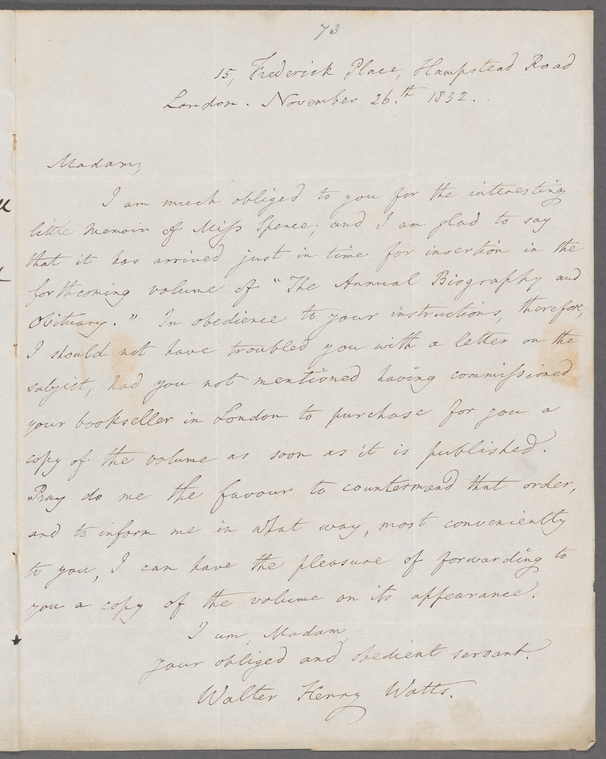 73
15, Frederick Place, Hampstead Road
London. November 26.th 1832.
Madam,
I am much obliged to you for the interesting
little memoir of Miss Spence; and I am glad to say
that it has arrived just in time for insertion in the
forthcoming volume of "The Annual Biography and
Obituary." In obedience to your instructions, therefore,
I should not have troubled you with a letter on the
subject, had you not mentioned having commissioned
your bookseller in London to purchase for you a
copy of the volume as soon as it is published.
Pray do me the favour to countermand that order,
and to inform me in what way, most conveniently
to you, I can have the pleasure of forwarding to
you a copy of the volume on its appearance.
I am, Madam,
your obliged and obedient servant.
Walter Henry Watts.